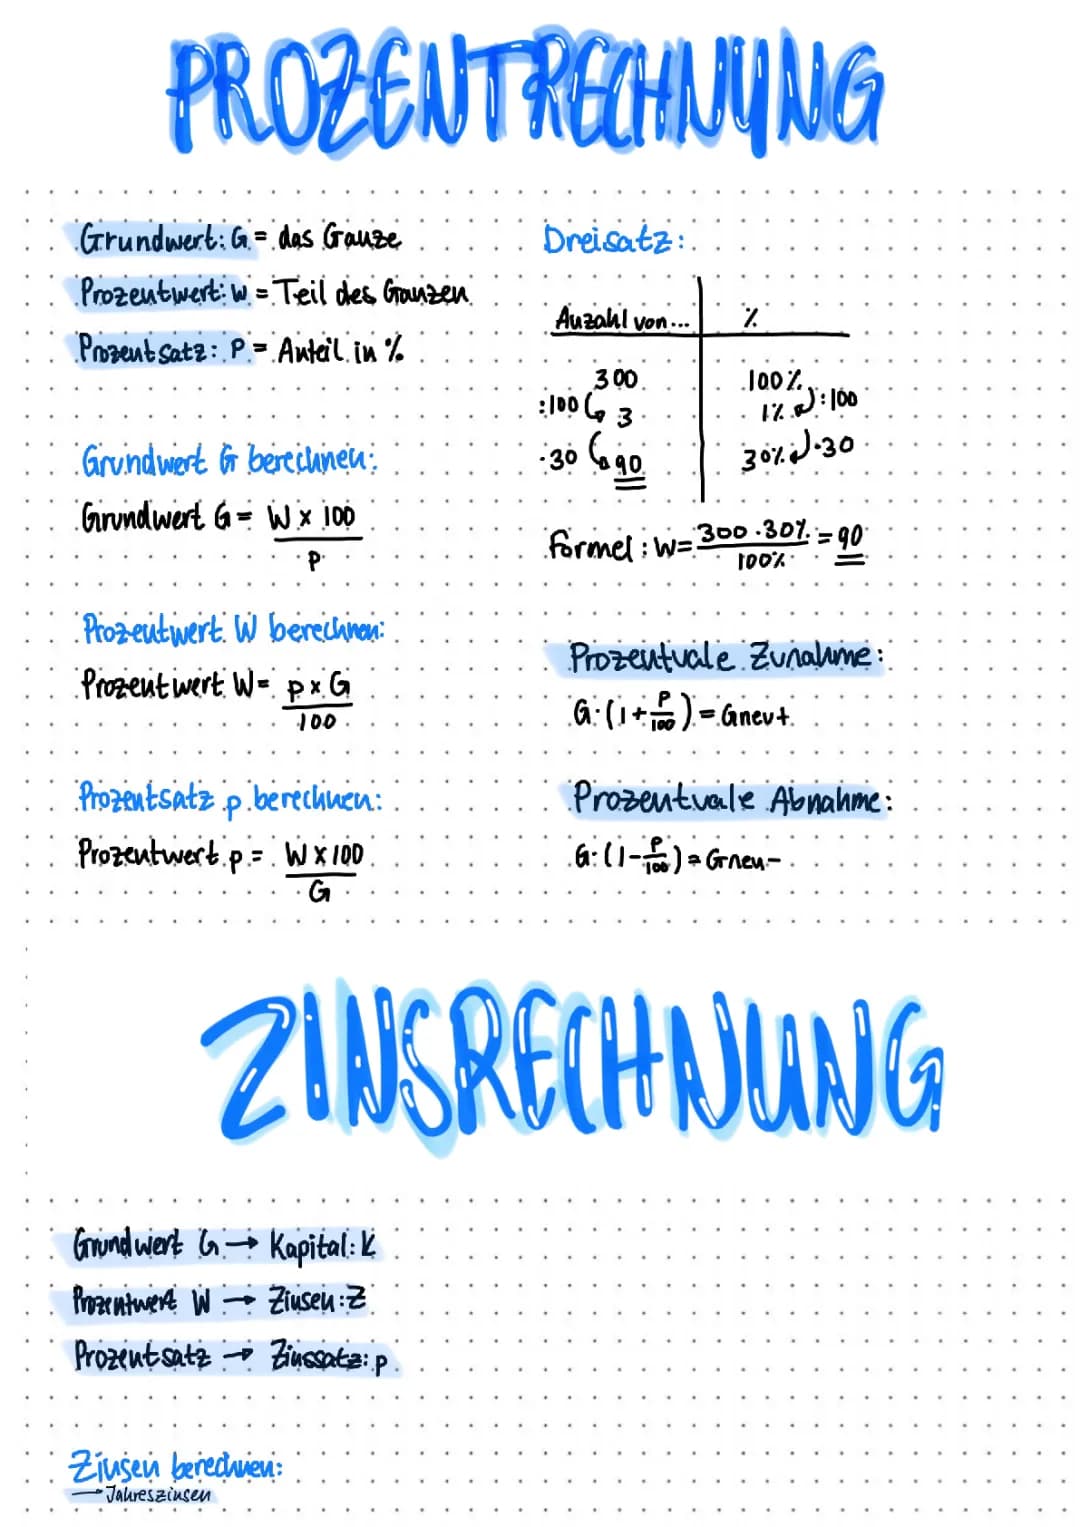 PROZENTRECHNUNG
Grundwert: G = das Ganze
Prozentwert: W = Teil des Ganzen
Prozentsatz: P = Anteil in %
Grundwert G berechnen:
Grundwert G = W x 100
P
Prozentwert W berechnen:
Prozentwert W = p x G
100
Prozentsatz p berechnen:
Prozentwert p = W x 100
G
Dreisatz:
Anzahl von... %
300 100%
:100 3 1% :100
·30 90 30% ·30
Formel: W = 300 · 30% = 90
100%
Prozentuale Zunahme:
G · (1 + P/100) = Gneu+
Prozentuale Abnahme:
G · (1 - P/100) = Gneu-
ZINSRECHNUNG
Grundwert G → Kapital: K
Prozentwert W → Zinsen: Z
Prozentsatz → Zinssatz: p
Zinsen berechnen:
→ Jahreszinsen